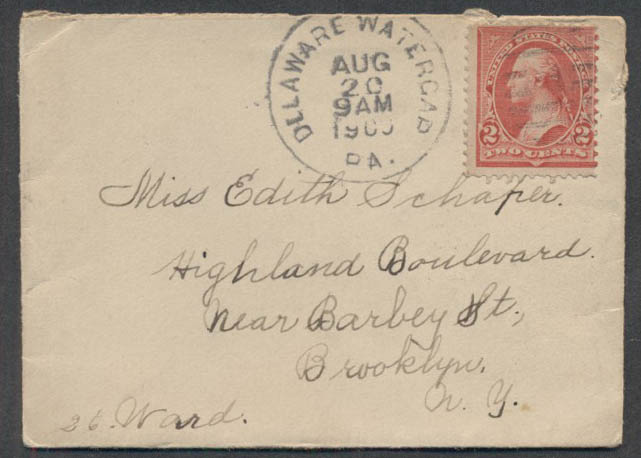 DELAWARE WATERGAP
AUG
20
9AM
1900
PA.
UNITED STATES OF
2 2
TWO CENTS
Miss Edith Schaper.
Highland Boulevard.
near Barbey St.,
Brooklyn.
N. Y.
26. Ward.